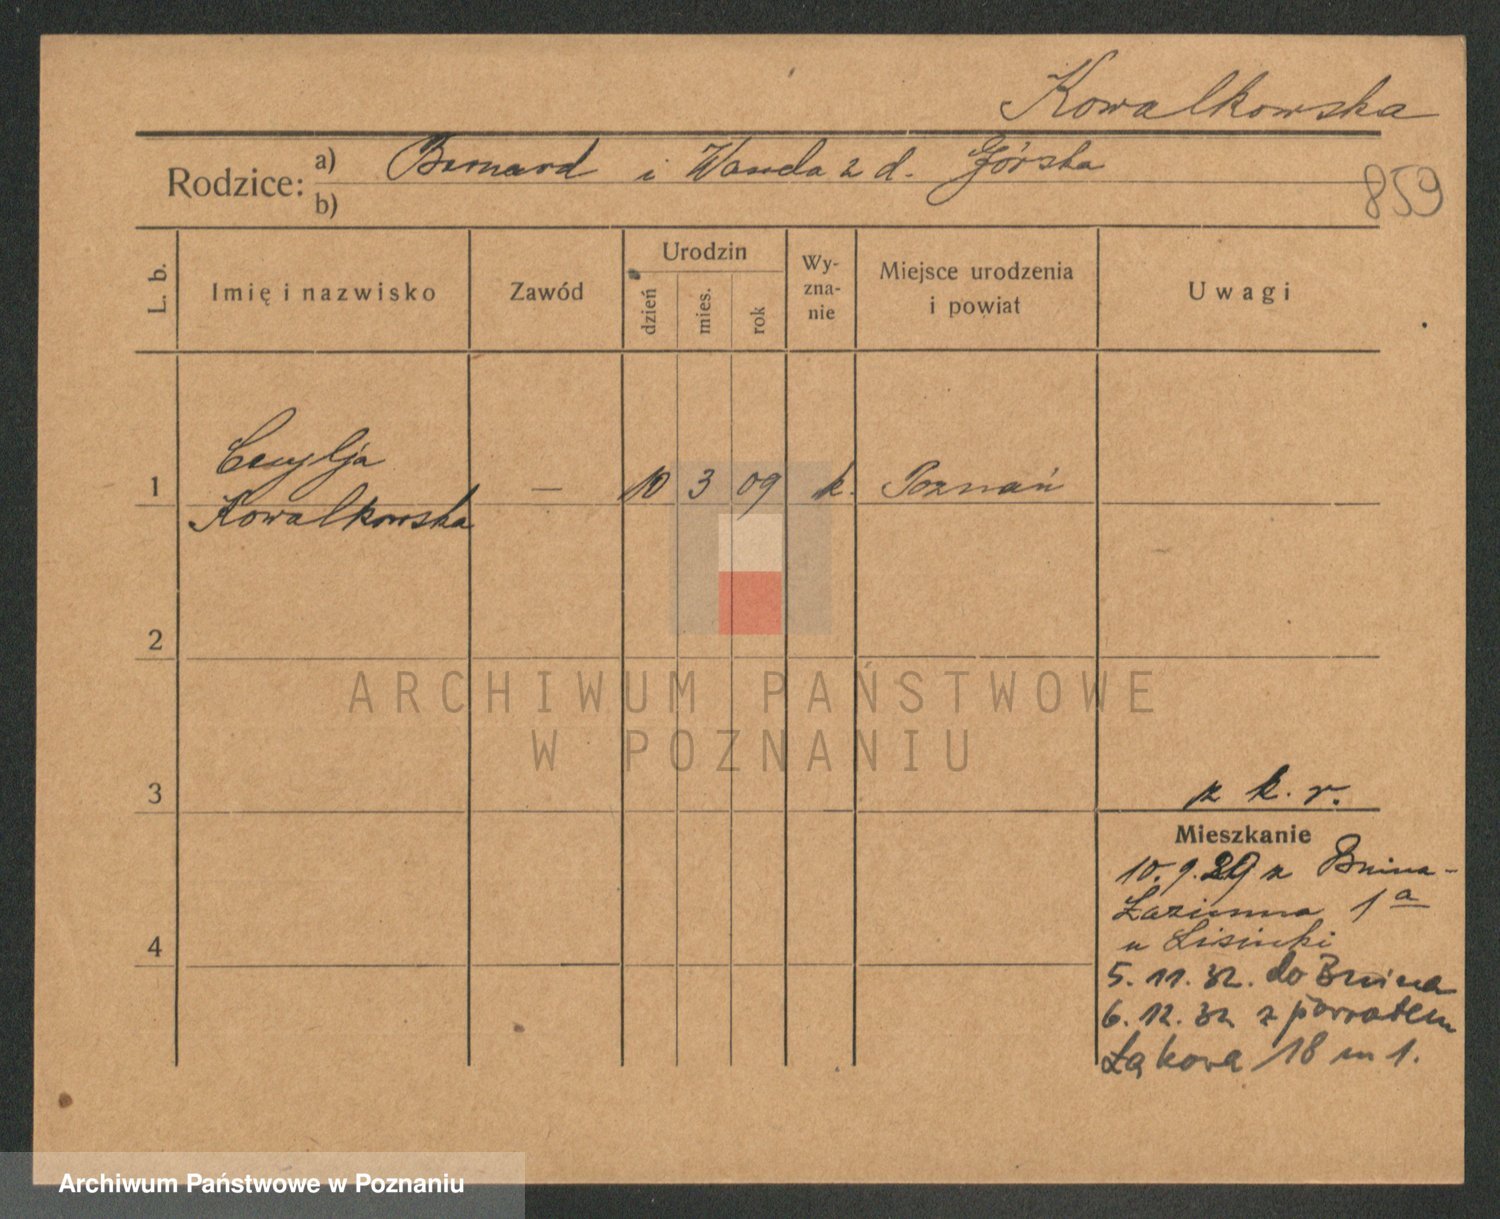 Kowalkowska
Rodzice: a) Bernard i Wanda z d. Górska
b)
859
L. b.
Imię i nazwisko
Zawód
Urodzin
dzień
mies.
rok
Wy-
zna-
nie
Miejsce urodzenia
i powiat
Uwagi
Cecylja
1 Kowalkowska — 10 3 09 k. Poznań
2
ARCHIWUM PAŃSTWOWE
W POZNANIU
3
z k. r.
Mieszkanie
10. 9. 29 z Bnina -
Łazienna 1a
u Lisiecki
4
5. 11. 32. do Bnina
6. 12. 32 z powrotem
Łąkowa 18 m 1.
Archiwum Państwowe w Poznaniu